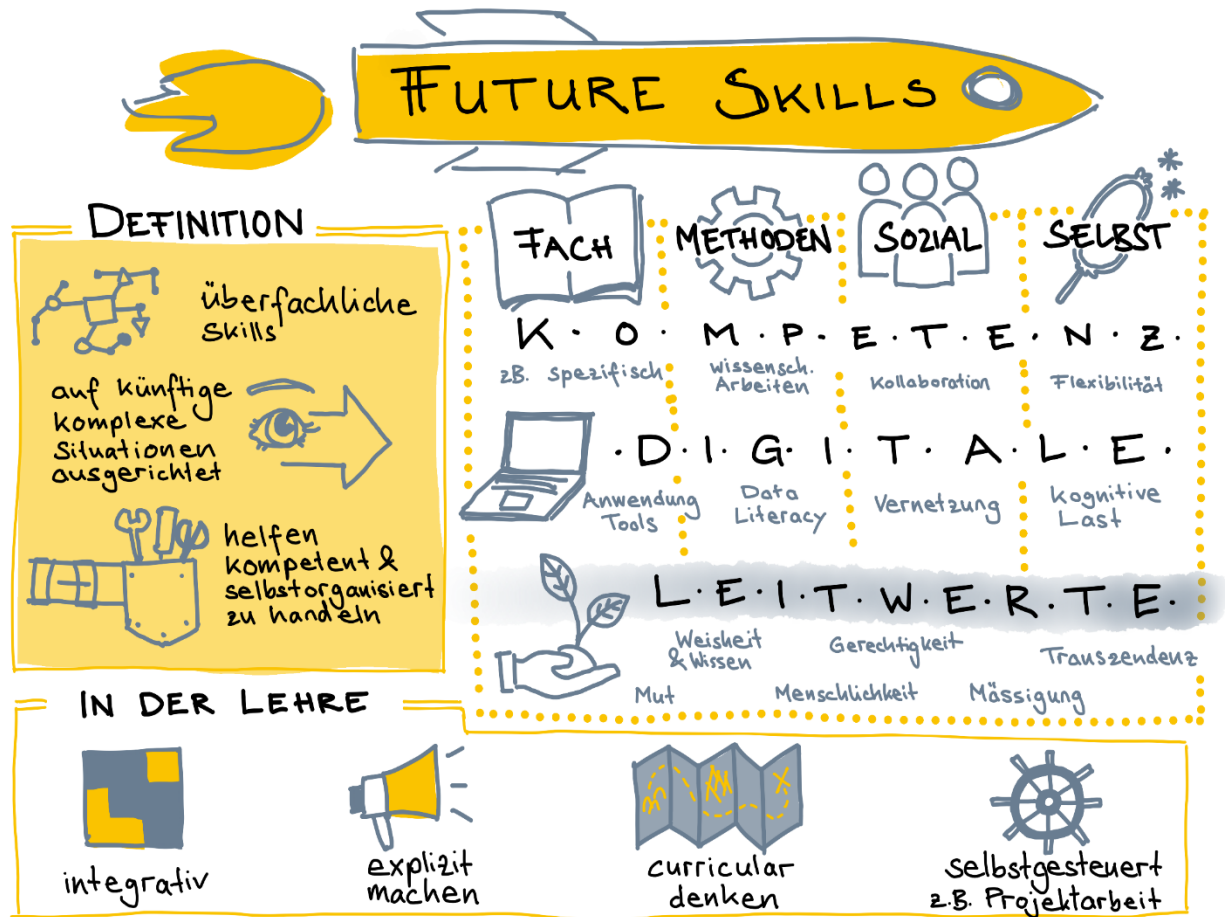 FUTURE SKILLS
DEFINITION
überfachliche
Skills
auf künftige
komplexe
Situationen
ausgerichtet
helfen
kompetent &
selbstorganisiert
zu handeln
FACH METHODEN SOZIAL SELBST
K·O·M·P·E·T·E·N·Z·
zB. spezifisch
wissensch.
Arbeiten
Kollaboration
Flexibilität
·D·I·G·I·T·A·L·E·
Anwendung
Tools
Data
Literacy
Vernetzung
Kognitive
Last
L·E·I·T·W·E·R·T·E·
Weisheit
& Wissen
Gerechtigkeit
Transzendenz
Mut
Menschlichkeit
Mässigung
IN DER LEHRE
integrativ
explizit
machen
curricular
denken
selbstgesteuert
z.B. Projektarbeit